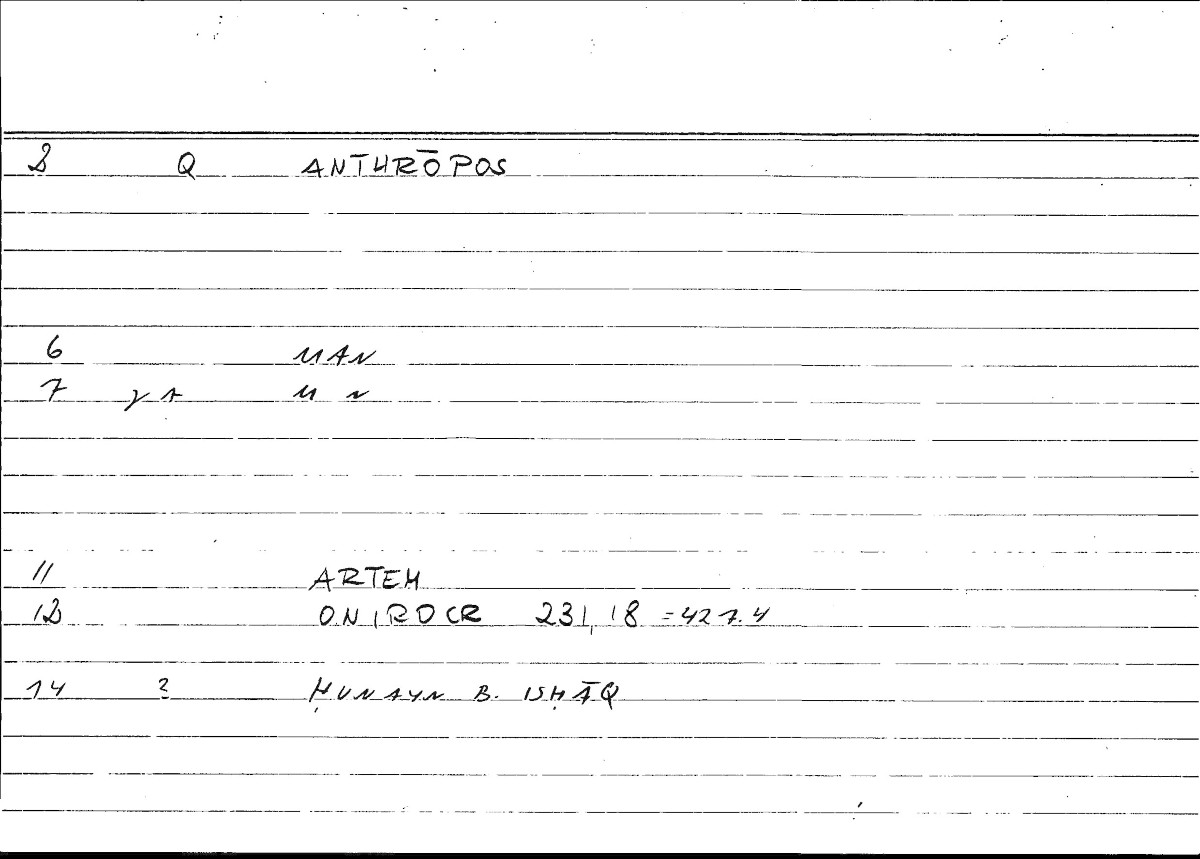 2 Q ANTHRŌPOS
6 MAN
7 M N
11 ARTEM
12 ONIROCR 231,18 = 427.4
14 2 ḤUNAYN B. ISḤĀQ